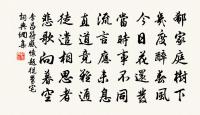 郗家庭樹下
幾度醉春風
今日花還發
當時事不同
流言應未息
直道竟難通
徒遣相思者
悲歌向暮空
李昌符感懷題從舅宅
詞典網集